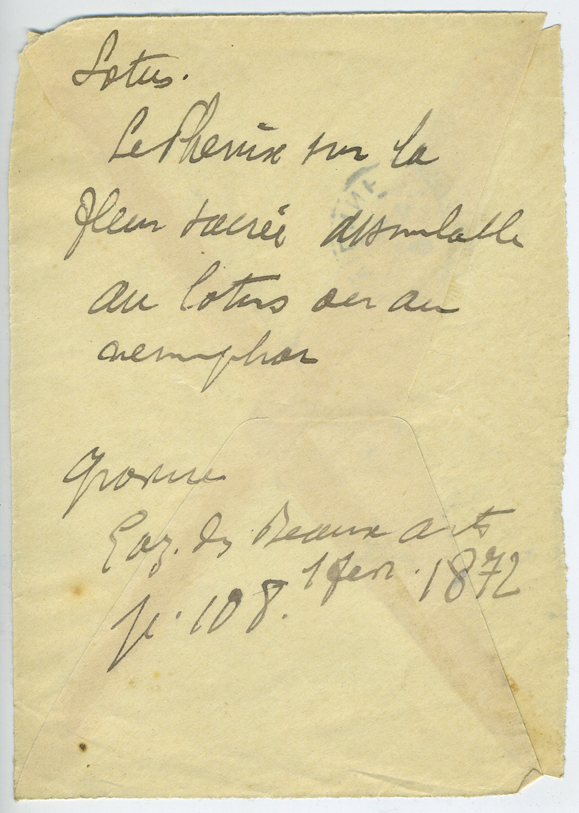 Lotus.
Le Phenix sur la
fleur sacrée
au lotus ou au
nenuphar
gravure
Gaz. des Beaux arts
1 fevr. 1872
p. 108.